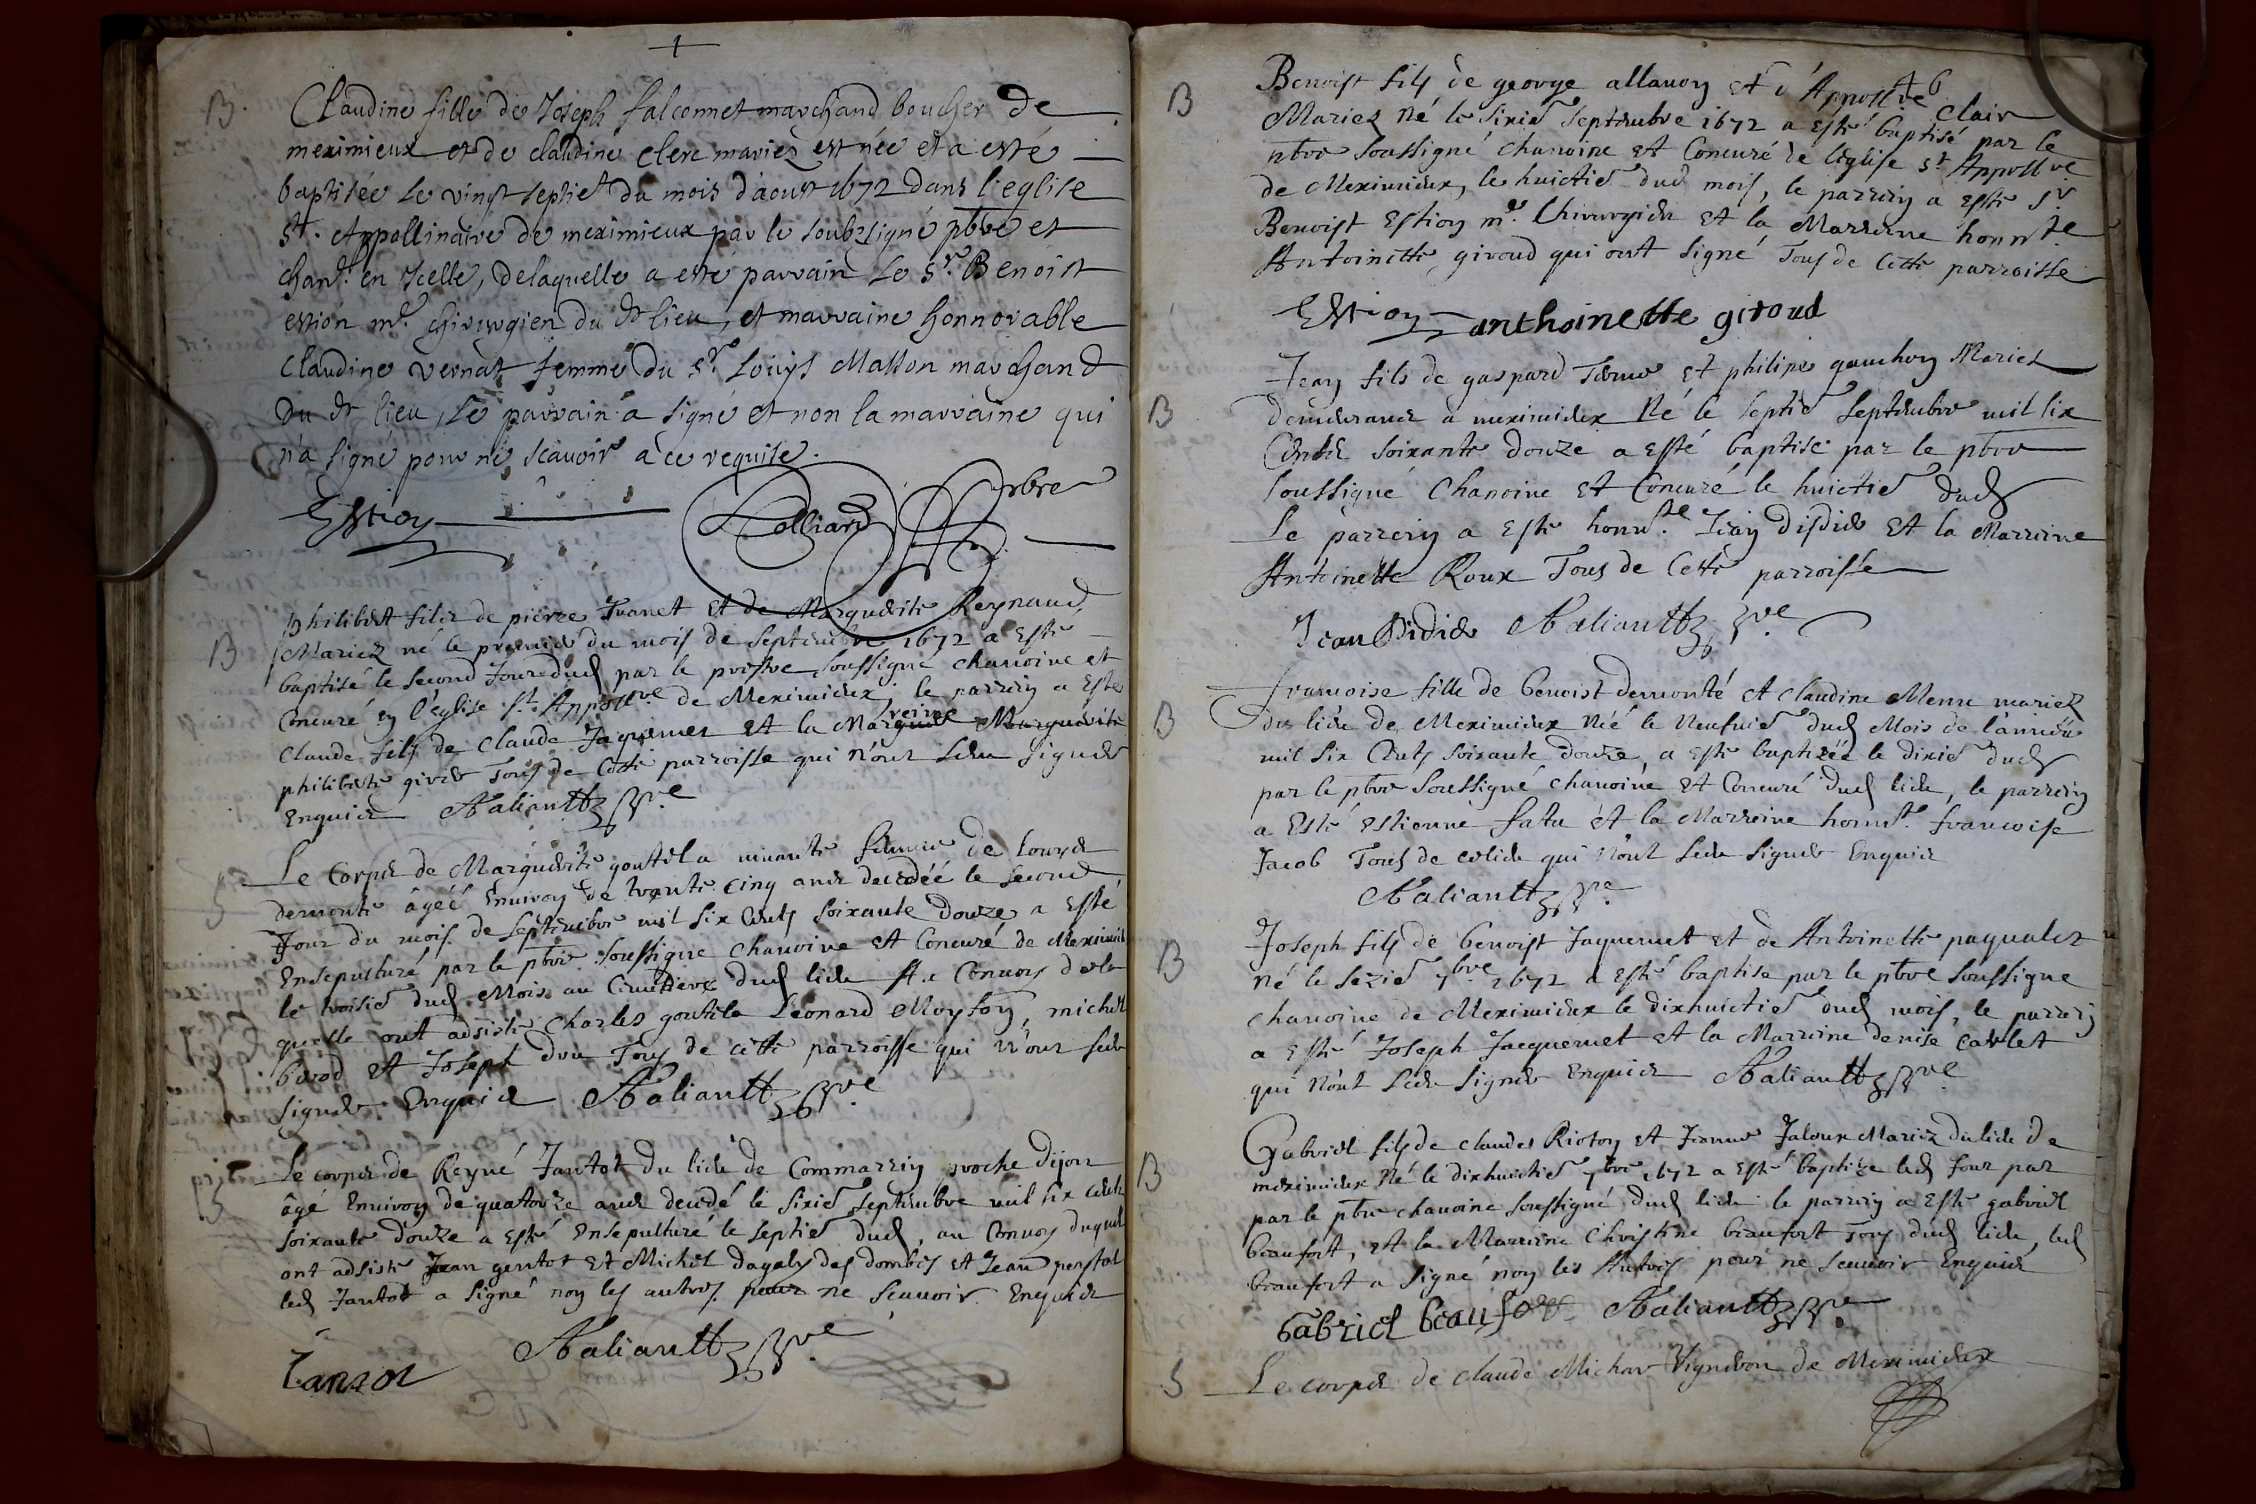 B. Claudine fille de Joseph falconnet marchand boucher de
meximieux et de claudine clerc mariés est née et a esté
baptisée le vingt septie du mois d'aoust 1672 dans l'eglise
St. Appollinaire de meximieux par le soubzsigné pbre et
chane. en Icelle, delaquelle a esté parrain le Sr. Benoist
estion me. chirurgien du dt lieu, et marraine honnorable
claudine vernat femme du Sr. Loüys Masson marchand
du dt lieu, le parrain a signé et non la marraine qui
n'a signé pour ne scavoir a ce requise.
Estion
B philibert filz de pierre Juanet et de Marguerite Reynaud
Mariez né le premier du mois de Septembre 1672 a esté
baptisé le second Jour dud par le prestre soussigné chanoine et
Concuré en l'église St. Appollre de Meximieux le parrin a esté
Claude fils de Claude Jaquemet et la Marreine
philiberte giver Tous de cette parroisse qui n'ont sceu signer
Enquis Naliantt
S Le corps de Marguerite vivante femme de Louys
demonte âgéé Environ de trante cinq ans decedéé le second
Jour du mois de Septembre mil six cents soixante douze a esté
Ensepulturé par le pbre soussigne chanoine et Concuré de Meximieux
le troisie dud Mois au Cimetiere dud lieu Au Convoy de la
quelle ont adsisté Charles goutela Leonard Moyson, michel
et Joseph Tous de cette parroisse qui n'ont sceu
signer Enquis Naliantt
S Le corps de Reyné Jantot du lieu de Commarrin proche dijon
âgé Environ de quatorze ans decedé le sixie Septembre mil six cents
soixante douze a esté Ensepulturé le septie dud, au Convoy duquel
ont adsisté Jean gentot et Michel des dombes et Jean
led Jantot a signé non les autres pour ne scavoir Enquis
Jantot Naliantt
B Benoist fils de george allavon et d' Appollre clair
Mariez né le sixie Septembre 1672 a esté baptisé par le
pbre soussigné chanoine et Concuré de l'eglise St Appollre
de Meximieux, le huictie dud mois, le parrin a esté Sr.
Benoist Estion me. Chirurgien et la Marreine honnte.
Antoinette giroud qui ont signé Tous de Cette parroisse
Estion anthoinette giroud
B Jean fils de gaspard et philipe gauchon Mariez
demeurants a meximieux Né le septie Septembre mil six
Cents soixante douze a esté baptisé par le pbre
soussigné Chanoine et Concuré le huictie dud
Le parrein a esté honnte. Jean disdier et la Marrine
Antoinette Roux Tous de Cette parroisse
Jean Didier Naliantt
B francoise fille de benoist demonté et claudine Menu mariez
du lieu de Meximieux Néé le Neufvie dud Mois de l'année
mil six Cents soixante douze, a esté baptizéé le dixie dud
par le pbre soussigné chanoine et Concuré dud lieu, le parrein
a Esté estienne fatu et la Marreine honnte. francoise
Jacob Tous de ce lieu qui n'ont sceu signer Enquis
Naliantt
B Joseph fils de benoist Jaquemet et de Antoinette
né le sezie 7bre. 1672 a esté baptise par le pbre soussigne
chanoine de Meximieux le dixhuictie dud mois, le parrein
a esté Joseph Jacquemet et la Marrine denise Carlet
qui n'ont sceu signer Enquis Naliantt
B Gabriel fils de claude Rioton et Jeanne Jaloux Mariez du lieu de
meximieux Né le dixhuictie 7bre 1672 a esté baptize led Jour par
par le pbre chanoine soussigné dud lieu le parrein a esté gabriel
beaufort, et la Marreine Christine beaufort Tous dud lieu, led
beaufort a signé non les Autres pour ne scavoir Enquis
Gabriel beaufort Naliantt
S Le corps de claude Michar Vigneron de Meximieux